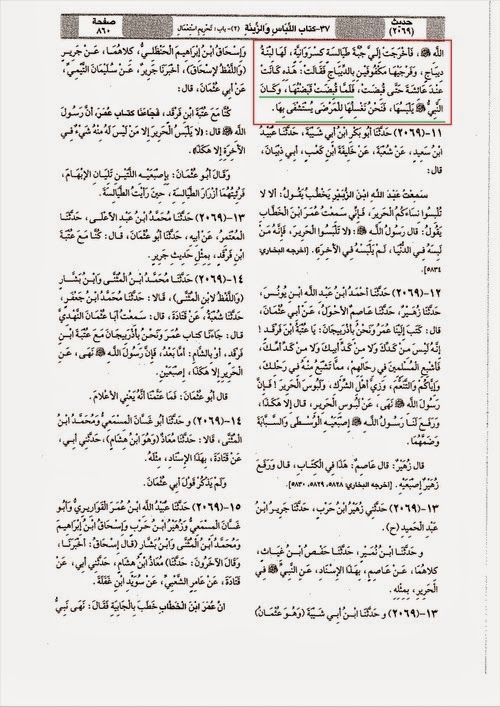 حديث
(٢٠٦٩)
٣٧-كتاب اللباس والزينة (٢)-باب: تحريم استعمال
صفحة
٨٦٠
الله ﷺ، فَأَخْرَجَتْ إِلَيَّ جُبَّةَ طَيَالِسَةٍ كِسْرَوَانِيَّةٍ، لَهَا لِبْنَةُ
دِيبَاجٍ، وَفَرْجَيْهَا مَكْفُوفَيْنِ بِالدِّيبَاجِ فَقَالَتْ: هَذِهِ كَانَتْ
عِنْدَ عَائِشَةَ حَتَّى قُبِضَتْ، فَلَمَّا قُبِضَتْ قَبَضْتُهَا، وَكَانَ
النَّبِيُّ ﷺ يَلْبَسُهَا، فَنَحْنُ نَغْسِلُهَا لِلْمَرْضَى يُسْتَشْفَى بِهَا.
١١-(٢٠٦٩) حَدَّثَنَا أَبُو بَكْرِ ابْنُ أَبِي شَيْبَةَ، حَدَّثَنَا عُبَيْدُ
بْنُ سَعِيدٍ، عَنْ شُعْبَةَ، عَنْ خَلِيفَةَ ابْنِ كَعْبٍ، أَبِي ذِبْيَانَ،
قال:
سَمِعْتُ عَبْدَ اللهِ ابْنَ الزُّبَيْرِ يَخْطُبُ يَقُولُ: أَلا لا
تُلْبِسُوا نِسَاءَكُمُ الْحَرِيرَ، فَإِنِّي سَمِعْتُ عُمَرَ ابْنَ الْخَطَّابِ
يَقُولُ: قال رَسُولُ اللهِ ﷺ: لا تَلْبَسُوا الْحَرِيرَ، فَإِنَّهُ مَنْ
لَبِسَهُ فِي الدُّنْيَا، لَمْ يَلْبَسْهُ فِي الآخِرَةِ. [اخرجه البخاري:
٥٨٣٤].
١٢-(٢٠٦٩) حَدَّثَنَا أَحْمَدُ ابْنُ عَبْدِ اللهِ ابْنِ يُونُسَ،
حَدَّثَنَا زُهَيْرٌ، حَدَّثَنَا عَاصِمٌ الأَحْوَلُ، عَنْ أَبِي عُثْمَانَ،
قال: كَتَبَ إِلَيْنَا عُمَرُ وَنَحْنُ بِأَذْرَبِيجَانَ: يَا عُتْبَةُ ابْنَ فَرْقَدٍ !
إِنَّهُ لَيْسَ مِنْ كَدِّكَ وَلا مِنْ كَدِّ أَبِيكَ وَلا مِنْ كَدِّ أُمِّكَ،
فَأَشْبِعِ الْمُسْلِمِينَ فِي رِحَالِهِمْ، مِمَّا تَشْبَعُ مِنْهُ فِي رَحْلِكَ،
وَإِيَّاكُمْ وَالتَّنَعُّمَ، وَزِيَّ أَهْلِ الشِّرْكِ، وَلَبُوسَ الْحَرِيرَ ! فَإِنَّ
رَسُولَ اللهِ ﷺ نَهَى، عَنْ لَبُوسِ الْحَرِيرِ، قال إِلا هَكَذَا،
وَرَفَعَ لَنَا رَسُولُ اللهِ ﷺ إِصْبَعَيْهِ الْوُسْطَى وَالسَّبَّابَةَ
وَضَمَّهُمَا.
قال زُهَيْرٌ: قال عَاصِمٌ: هَذَا فِي الْكِتَابِ، قال وَرَفَعَ
زُهَيْرٌ إِصْبَعَيْهِ. [اخرجه البخاري: ٥٨٢٨، ٥٨٢٩، ٥٨٣٠].
١٣-(٢٠٦٩) حَدَّثَنِي زُهَيْرُ ابْنُ حَرْبٍ، حَدَّثَنَا جَرِيرُ ابْنُ
عَبْدِ الْحَمِيدِ (ح)
و حَدَّثَنَا ابْنُ نُمَيْرٍ، حَدَّثَنَا حَفْصُ ابْنُ غِيَاثٍ،
كِلاهُمَا، عَنْ عَاصِمٍ، بِهَذَا الإِسْنَادِ، عَنِ النَّبِيِّ ﷺ فِي
الْحَرِيرِ، بِمِثْلِهِ.
١٣-(٢٠٦٩) و حَدَّثَنَا ابْنُ أَبِي شَيْبَةَ (وَهُوَ عُثْمَانُ)
وَإِسْحَاقُ ابْنُ إِبْرَاهِيمَ الْحَنْظَلِيُّ، كِلاهُمَا، عَنْ جَرِيرٍ
(وَاللَّفْظُ لإِسْحَاقَ)، أَخْبَرَنَا جَرِيرٌ، عَنْ سُلَيْمَانَ التَّيْمِيِّ،
عَنْ أَبِي عُثْمَانَ، قال:
كُنَّا مَعَ عُتْبَةَ ابْنِ فَرْقَدٍ، فَجَاءَنَا كِتَابُ عُمَرَ، أَنَّ رَسُولَ اللهِ ﷺ
قال: لا يَلْبَسُ الْحَرِيرَ إِلا مَنْ لَيْسَ لَهُ مِنْهُ شَيْءٌ فِي
الآخِرَةِ إِلا هَكَذَا.
وَقال أَبُو عُثْمَانَ: بِإِصْبَعَيْهِ اللَّتَيْنِ تَلِيَانِ الإِبْهَامَ،
فَرُئِيتُهُمَا أَزْرَارَ الطَّيَالِسَةِ، حِينَ رَأَيْتُ الطَّيَالِسَةَ.
١٣-(٢٠٦٩) حَدَّثَنَا مُحَمَّدُ ابْنُ عَبْدِ الأَعْلَى، حَدَّثَنَا
الْمُعْتَمِرُ، عَنْ أَبِيهِ، حَدَّثَنَا أَبُو عُثْمَانَ، قال: كُنَّا مَعَ عُتْبَةَ
ابْنِ فَرْقَدٍ، بِمِثْلِ حَدِيثِ جَرِيرٍ.
١٤-(٢٠٦٩) حَدَّثَنَا مُحَمَّدُ ابْنُ الْمُثَنَّى وَابْنُ بَشَّارٍ
(وَاللَّفْظُ لابْنِ الْمُثَنَّى)، قَالا: حَدَّثَنَا مُحَمَّدُ ابْنُ جَعْفَرٍ،
حَدَّثَنَا شُعْبَةُ، عَنْ قَتَادَةَ، قال: سَمِعْتُ أَبَا عُثْمَانَ النَّهْدِيَّ
قال: جَاءَنَا كِتَابُ عُمَرَ وَنَحْنُ بِأَذْرَبِيجَانَ مَعَ عُتْبَةَ ابْنِ
فَرْقَدٍ، أَوْ بِالشَّامِ: أَمَّا بَعْدُ، فَإِنَّ رَسُولَ اللهِ ﷺ نَهَى، عَنِ
الْحَرِيرِ إِلا هَكَذَا، إِصْبَعَيْنِ.
قال أَبُو عُثْمَانَ: فَمَا عَتَّمْنَا أَنَّهُ يَعْنِي الأَعْلامَ.
١٤-(٢٠٦٩) و حَدَّثَنَا أَبُو غَسَّانَ الْمِسْمَعِيُّ وَمُحَمَّدُ ابْنُ
الْمُثَنَّى، قَالا: حَدَّثَنَا مُعَاذٌ (وَهُوَ ابْنُ هِشَامٍ)، حَدَّثَنِي أَبِي،
عَنْ قَتَادَةَ، بِهَذَا الإِسْنَادِ، مِثْلَهُ.
وَلَمْ يَذْكُرْ قَوْلَ أَبِي عُثْمَانَ.
١٥-(٢٠٦٩) حَدَّثَنَا عُبَيْدُ اللهِ ابْنُ عُمَرَ الْقَوَارِيرِيُّ وَأَبُو
غَسَّانَ الْمِسْمَعِيُّ وَزُهَيْرُ ابْنُ حَرْبٍ وَإِسْحَاقُ ابْنُ إِبْرَاهِيمَ
وَمُحَمَّدُ ابْنُ الْمُثَنَّى وَابْنُ بَشَّارٍ (قال إِسْحَاقُ: أَخْبَرَنَا،
وقَالَ الآخَرُونَ: حَدَّثَنَا) مُعَاذُ ابْنُ هِشَامٍ، حَدَّثَنِي أَبِي، عَنْ
قَتَادَةَ، عَنْ عَامِرٍ الشَّعْبِيِّ، عَنْ سُوَيْدِ ابْنِ غَفَلَةَ.
أنَّ عُمَرَ ابْنَ الْخَطَّابِ خَطَبَ بِالْجَابِيَةِ فَقَالَ: نَهَى نَبِيُّ